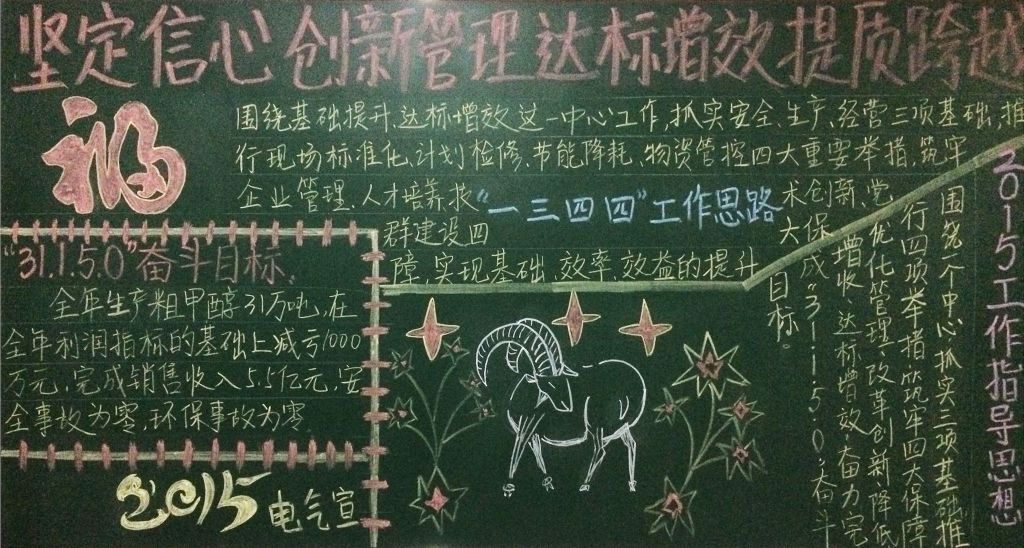 坚定信心创新管理达标增效提质跨越
福
围绕基础提升、达标增效这一中心工作,抓实安全、生产、经营三项基础,推
行现场标准化、计划检修、节能降耗、物资管控四大重要举措,筑牢
企业管理、人才培养、技
术创新、党
群建设四
大保
障,实现基础、效率、效益的提升
“一三四四”工作思路
“31.1.5.0”奋斗目标
全年生产粗甲醇31万吨,在
全年利润指标的基础上减亏1000
万元,完成销售收入5.5亿元,安
全事故为零,环保事故为零
2015 电气宣
2015工作指导思想
围绕一个中心,抓实三项基础,推
行四项举措,筑牢四大保障
优化管理、改革创新、降低
增收、达标增效,奋力完
成“31.1.5.0”奋斗
目标。